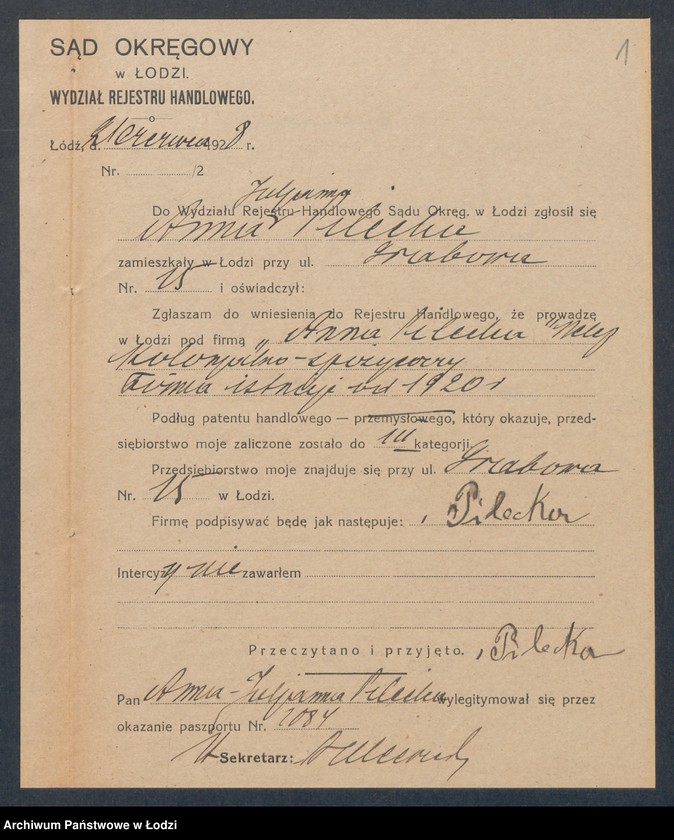 1
SĄD OKRĘGOWY
w ŁODZI.
WYDZIAŁ REJESTRU HANDLOWEGO.
Łódź, d. 21 czerwca 1928 r.
Nr. /2
Juljanna
Do Wydziału Rejestru Handlowego Sądu Okręg. w Łodzi zgłosił się
Anna Pilecka
zamieszkały w Łodzi przy ul. Grabowa
Nr. 15 i oświadczył:
Zgłaszam do wniesienia do Rejestru Handlowego, że prowadzę
w Łodzi pod firmą „Anna Pilecka"
kolonjalno-spożywczy
Firma istnieje od 1920 r
Podług patentu handlowego — przemysłowego, który okazuje, przed-
siębiorstwo moje zaliczone zostało do III kategorji.
Przedsiębiorstwo moje znajduje się przy ul. Grabowa
Nr. 15 w Łodzi.
Firmę podpisywać będę jak następuje: Pilecka
Intercyzy nie zawarłem
Przeczytano i przyjęto. Pilecka
Pan Anna-Juljanna Pilecka wylegitymował się przez
okazanie paszportu Nr. 1084
Sekretarz:
Archiwum Państwowe w Łodzi